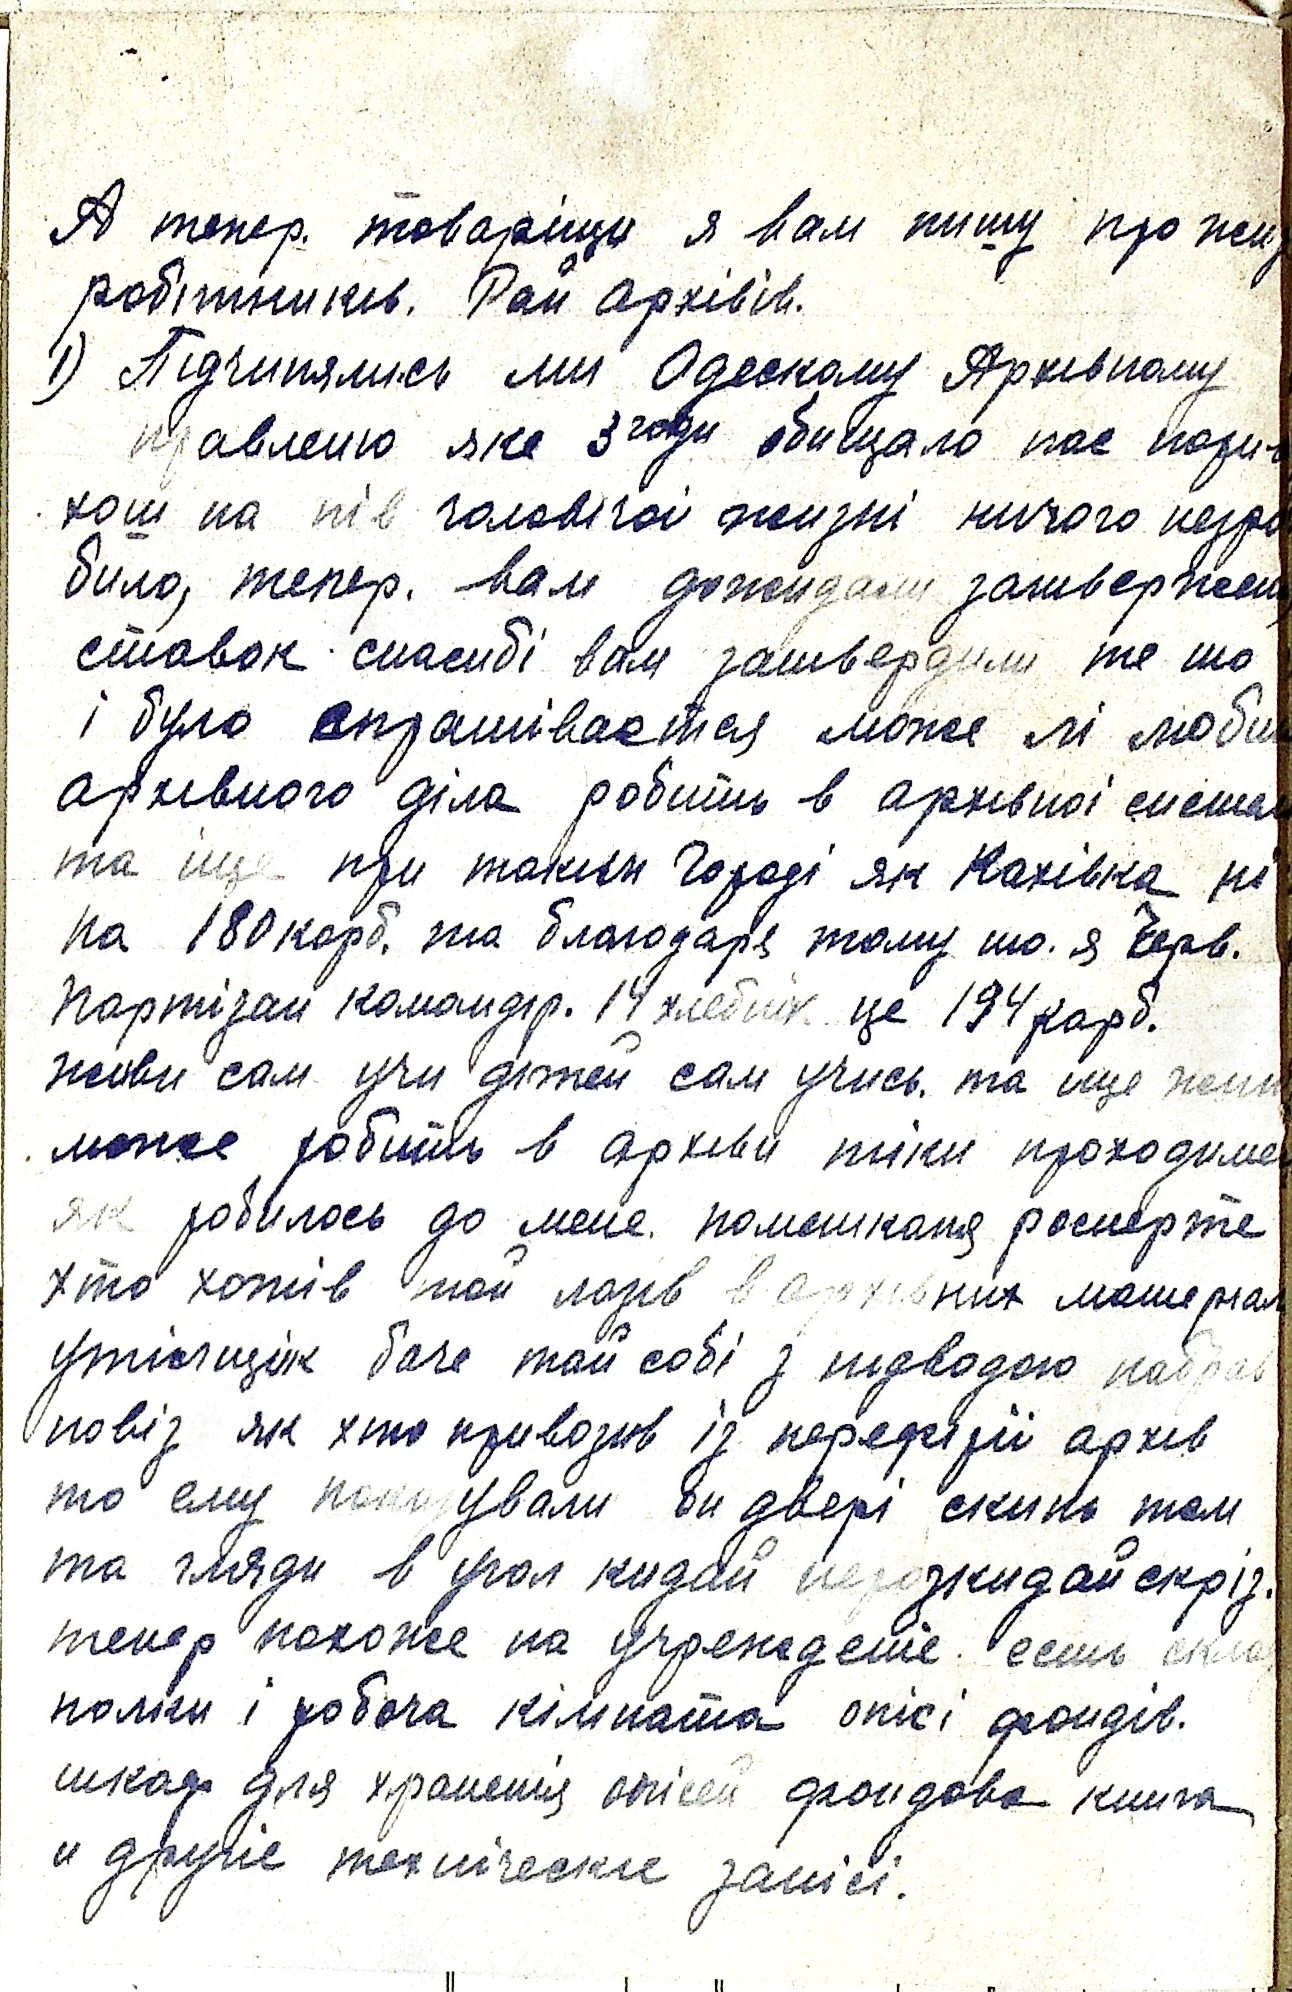 А тепер. товаріщи я вам пишу про жиз
робітників. Рай архівів.
1) Підчинялись ми Одескому Архівному
правленю яке 3 годи обіщало нас
хош на пів головічої жизні ничого незро
било, тепер. вам дожидали затвержен
ставок спасибі вам затвердили те шо
і було спрашівается може лі любит
архівного діла робить в архівної систем
та іще при таким городі як Кахівка
на 180 карб. та благодаря тому шо. я Черв.
Партізан командір. 14 хлебних це 194 карб.
живи сам учи дітей сам учись. та ище
може робить в архіви тіки проходимец
як робилось до мене. помешканя росперте
хто хотів той лазів в архівних матеріал
утільщік баче той собі з підводою набрав
повіз як хто привозив із переферії архів
то ему показували он двері скинь там
та гляди в угол кидай нерозкидай скріз.
тепер похоже на учрежденіе. есть скла
полки і робоча кімната опісі фондів.
шкаф для храненія опісей фондова книга
и другіе техніческіе запісі.